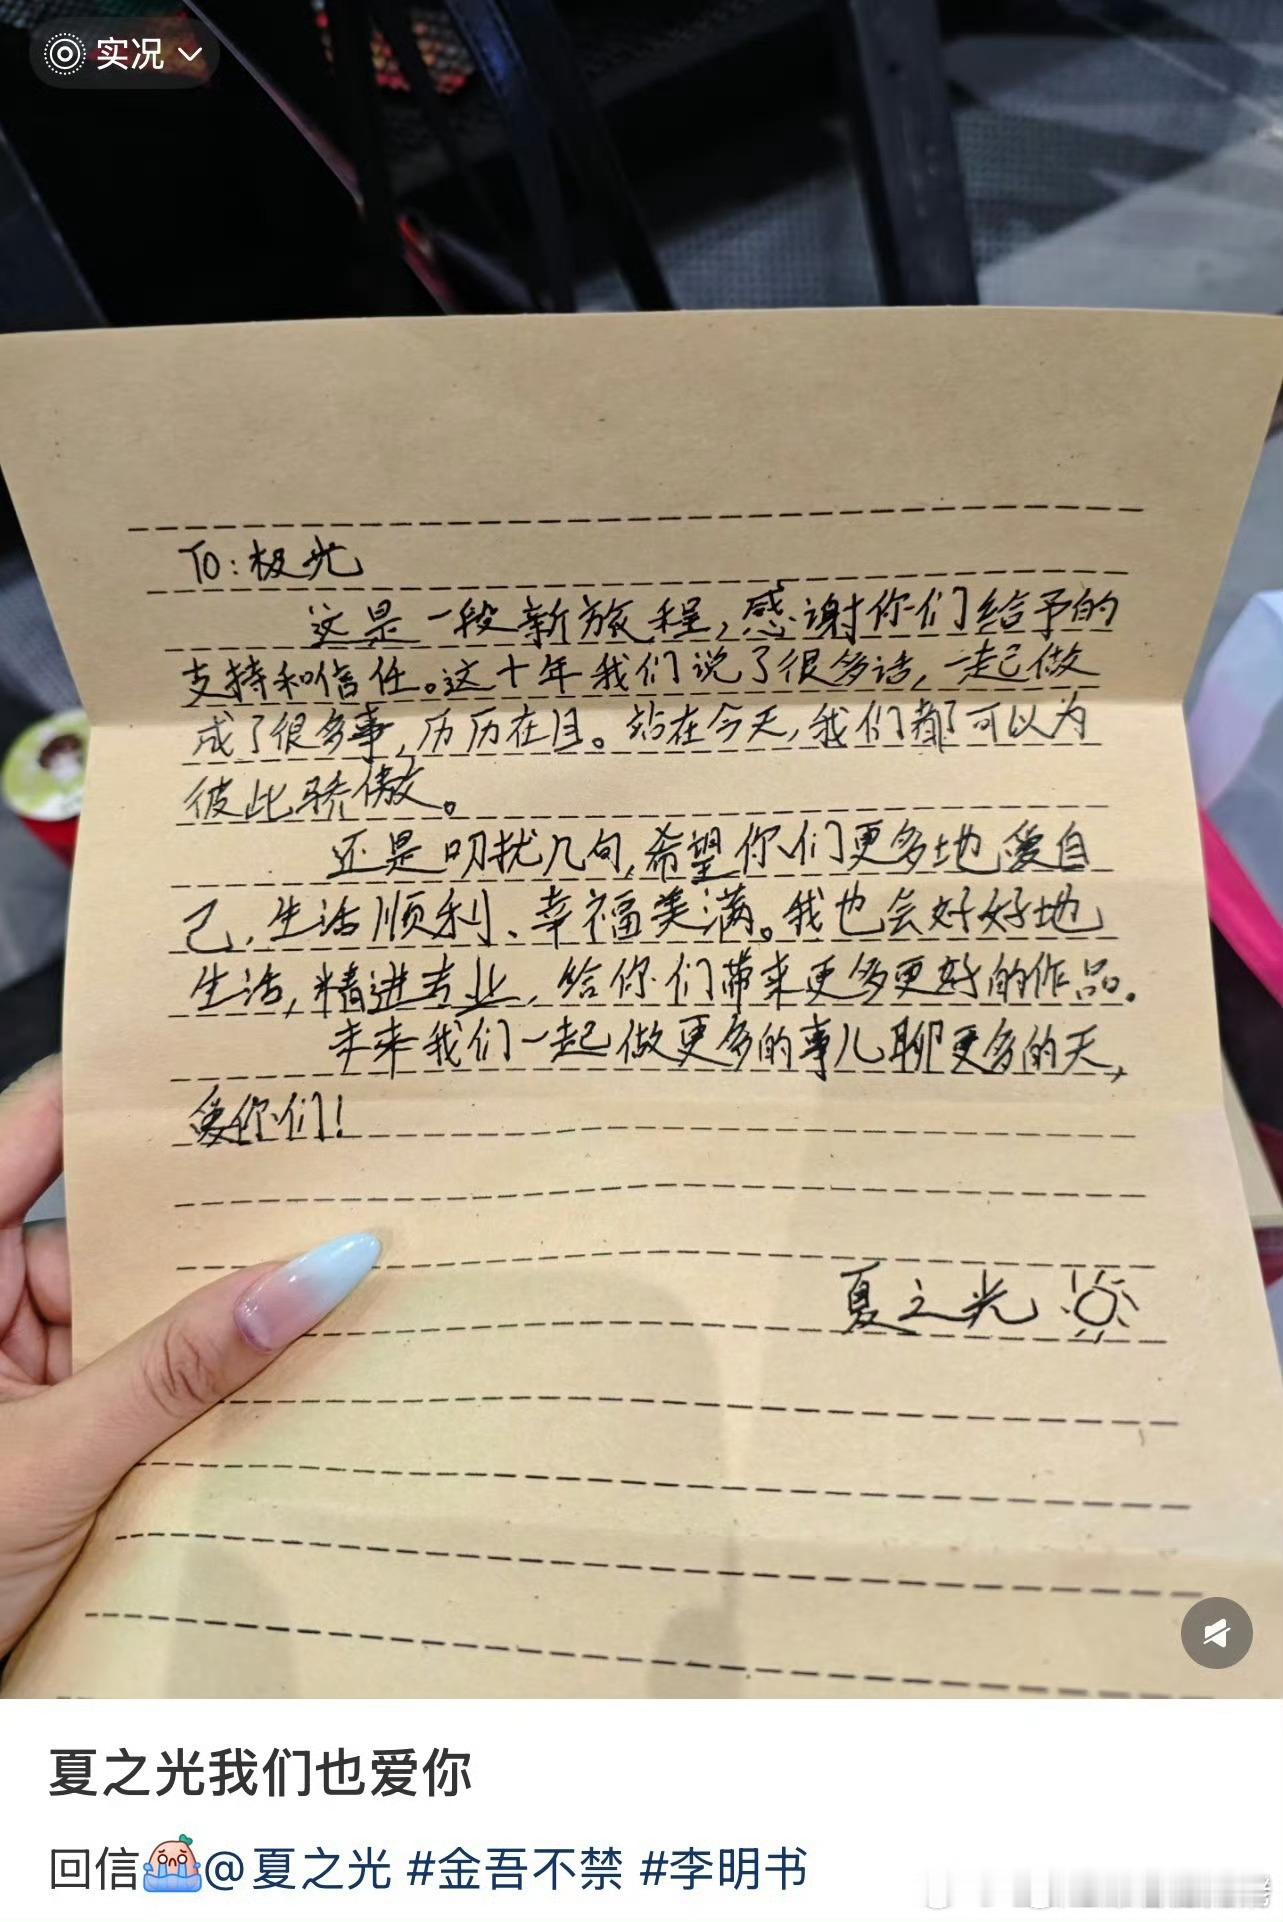 实况
To:极光
这是一段新旅程,感谢你们给予的
支持和信任。这十年我们说了很多话,一起做
成了很多事,历历在目。站在今天,我们都可以为
彼此骄傲。
还是叨扰几句,希望你们更多地爱自
己,生活顺利、幸福美满。我也会好好地
生活,精进专业,给你们带来更多更好的作品.
未来我们一起做更多的事儿聊更多的天,
爱你们!
夏之光
夏之光我们也爱你
回信@夏之光 #金吾不禁 #李明书